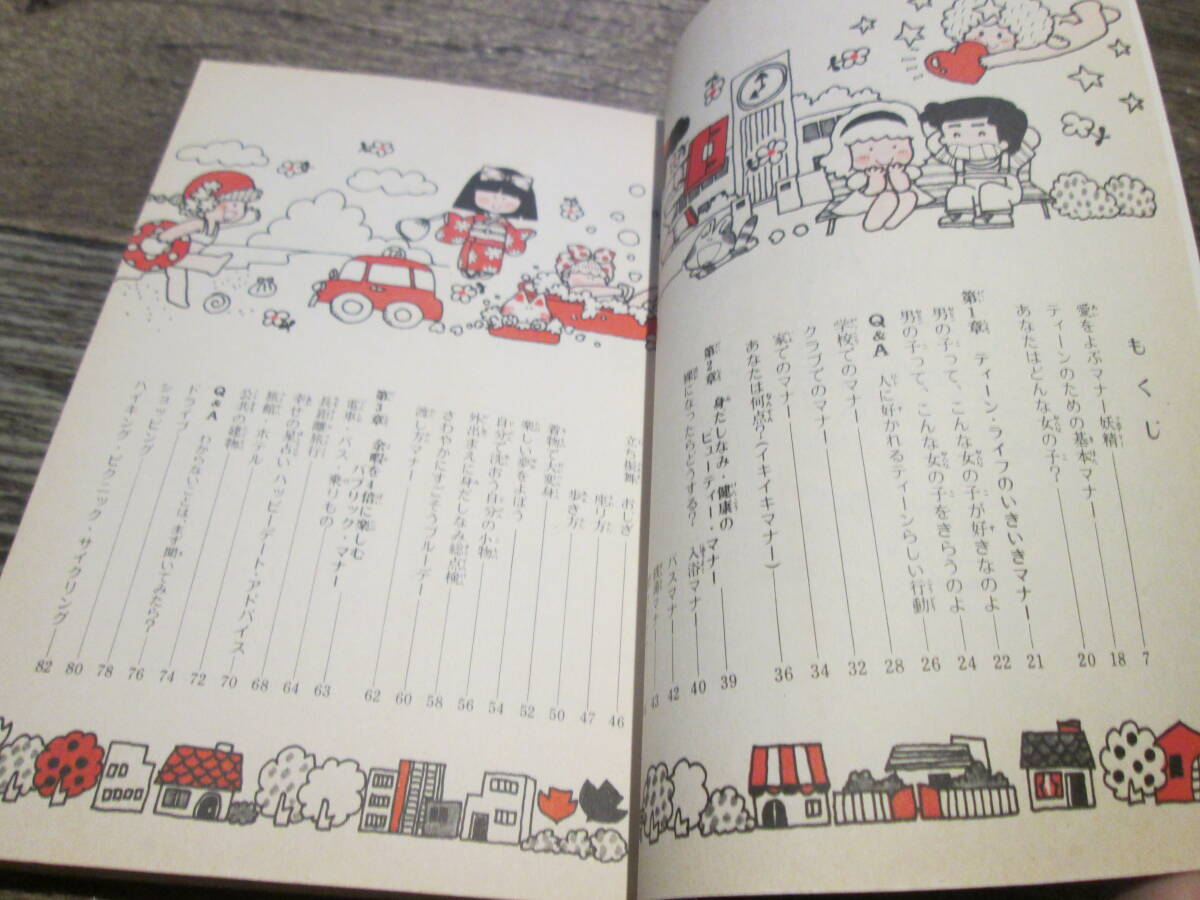 もくじ
愛をよぶマナー妖精 7
ティーンのための基本マナー 18
あなたはどんな女の子? 20
第1章 ティーン・ライフのいきいきマナー 21
男の子って、こんな女の子が好きなのよ 22
男の子って、こんな女の子をきらうのよ 24
Q&A 人に好かれるティーンらしい行動 26
学校でのマナー 28
クラブでのマナー 32
家でのマナー 34
あなたは何点?(イキイキマナー) 36
第2章 身だしなみ・健康の
ビューティー・マナー 39
裸になったらどうする? 入浴マナー 40
バスマナー 42
43
立ち振舞 おじぎ 46
座り方 47
歩き方 50
着物で大変身 52
楽しい夢をよぼう 54
自分で洗おう自分の小物 56
外出まえに身だしなみ総点検 58
さわやかにすごそうブルーデー 60
渡し方マナー 62
第3章 余暇を4倍に楽しむ
パブリック・マナー 63
電車・バス・乗りもの 64
長距離旅行 68
幸せの星占いハッピーデート・アドバイス 70
旅館・ホテル 72
公共の建物 74
Q&A わからないことは、まず聞いてみたら? 76
ドライブ 78
ショッピング 80
ハイキング・ピクニック・サイクリング 82